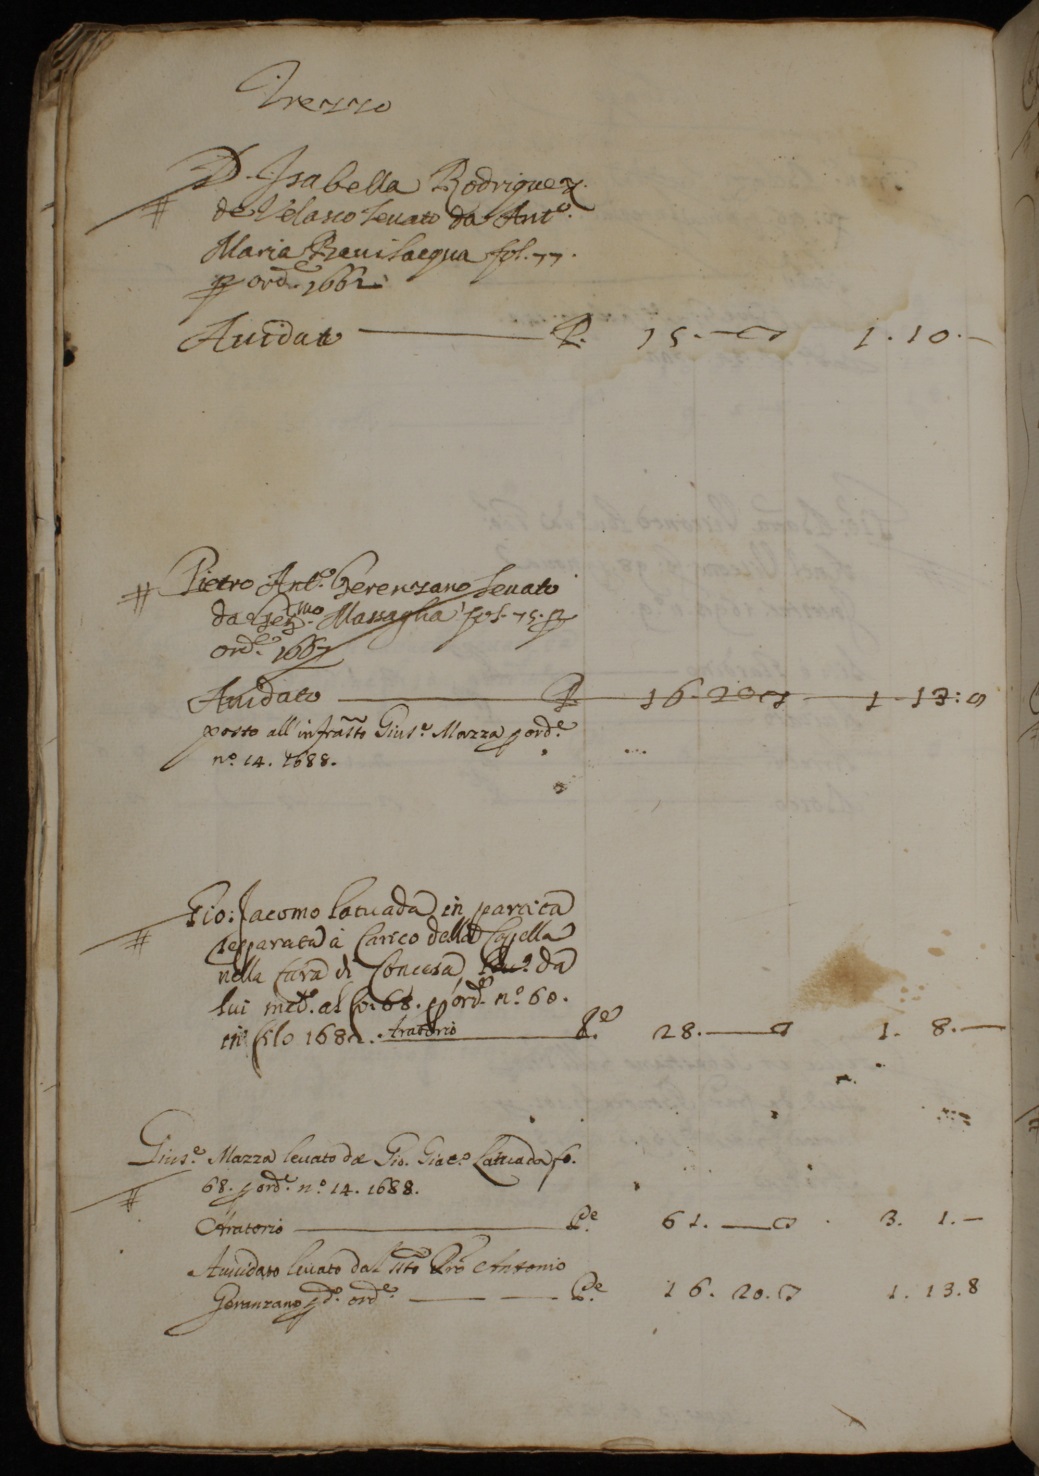 Trezzo
D. Isabella Rodriguez
de Velasco leuato da Ant.o
Maria Beuilacqua fol. 77.
p ord.e 1662
Auidato P. 15. — 1. 10. —
Pietro Ant.o Gerenzano leuato
da Massaglia fol. 75. p
ord.e 1667
Auidato P. 16. 20 1. 13: 9
posto all'infrasto Gius.e Mazza p ord.e
n.o 14. 1688.
Gio: Jacomo Latuada in partita
separata à Carico della Capella
nella Cura di Concesa da
lui med.o al fo: 68. p ord.e n.o 60.
in filo 1682. Aratorio P.e 28. — 1. 8. —
Gius.e Mazza leuato da Gio. Giac.o Lattuada fo.
68. p ord.e n.o 14. 1688.
Aratorio P.e 61. — 3. 1. —
Auuidato leuato dal Antonio
Geranzano p d.o ord.e P.e 16. 20. 1. 13. 8